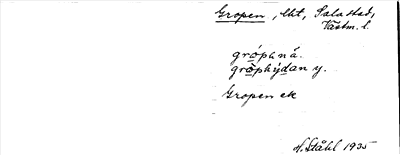 Gropen, lht, Sala stad,
Västm. l.
grópənå.
grøphýdan y.
Gropen ek
H. Ståhl 1935